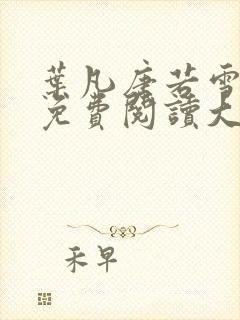 葉凡唐若雪
免費閱讀大
禾早